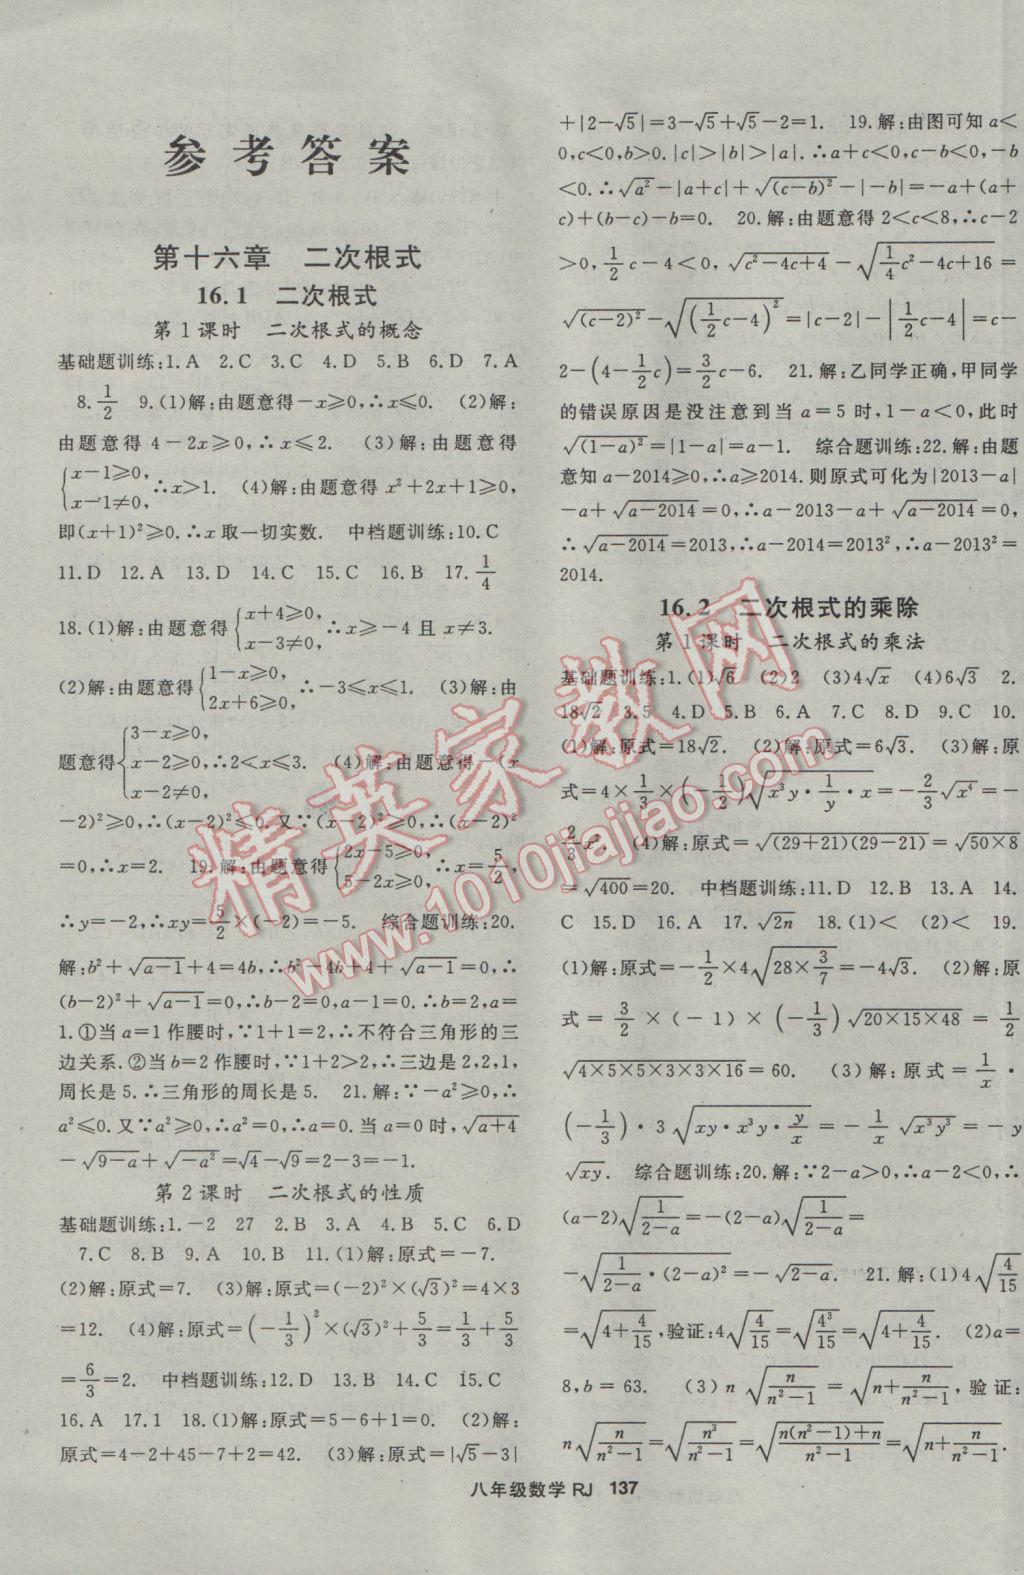 参考答案
第十六章 二次根式
16.1 二次根式
第1课时 二次根式的概念
基础题训练:1.A 2.C 3.C 4.D 5.B 6.D 7.A
8.1/2 9.(1)解:由题意得-x≥0,∴x≤0. (2)解:
由题意得4-2x≥0,∴x≤2. (3)解:由题意得
{x-1≥0, x-1≠0, ∴x>1. (4)解:由题意得x²+2x+1≥0,
即(x+1)²≥0.∴x取一切实数. 中档题训练:10.C
11.D 12.A 13.D 14.C 15.C 16.B 17.1/4
18.(1)解:由题意得{x+4≥0, x-3≠0, ∴x≥-4且x≠3.
(2)解:由题意得{1-x≥0, 2x+6≥0, ∴-3≤x≤1. (3)解:由
题意得{3-x≥0, x-2≥0, x-2≠0, ∴2<x≤3. (4)解:由题意得-(x
-2)²≥0,∴(x-2)²≤0.又∵(x-2)²≥0,∴(x-2)²
=0,∴x=2. 19.解:由题意得{2x-5≥0, 5-2x≥0, ∴x=5/2,
∴y=-2,∴xy=5/2×(-2)=-5. 综合题训练:20.
解:b²+√(a-1)+4=4b,∴b²-4b+4+√(a-1)=0,∴
(b-2)²+√(a-1)=0,∴b-2=0,a-1=0.∴b=2,a=
1.①当a=1作腰时,∵1+1=2,∴不符合三角形的三
边关系.②当b=2作腰时,∵1+2>2,∴三边是2,2,1,
周长是5.∴三角形的周长是5. 21.解:∵-a²≥0,∴
a²≤0.又∵a²≥0,∴a²=0,∴a=0.当a=0时,√(a+4)
-√(9-a)+√(-a²)=√4-√9=2-3=-1.
第2课时 二次根式的性质
基础题训练:1.-2 27 2.B 3.A 4.B 5.C 6.D
7.C 8.B 9.A 10.B 11.(1)解:原式=-7.
(2)解:原式=7. (3)解:原式=(-2)²×(√3)²=4×3
=12. (4)解:原式=(-1/3)²×(√3)²+5/3=1/3+5/3
=6/3=2. 中档题训练:12.D 13.B 14.C 15.C
16.A 17.1 18.(1)解:原式=5-6+1=0. (2)解:
原式=4-2+45-7+2=42. (3)解:原式=|√5-3|
+|2-√5|=3-√5+√5-2=1. 19.解:由图可知a<
0,c<0,b>0.|c|>|b|>|a|.∴a+c<0,c-b<0,-b
<0.∴√a²-|a+c|+√(c-b)²-|-b|=-a+(a+
c)+(b-c)-b=0. 20.解:由题意得2<c<8,∴c-2
>0,1/2c-4<0,√(c²-4c+4)-√(1/4c²-4c+16)=
√(c-2)²-√(1/2c-4)²=|c-2|-|1/2c-4|=c-
2-(4-1/2c)=3/2c-6. 21.解:乙同学正确,甲同学
的错误原因是没注意到当a=5时,1-a<0,此时
√(1-a)²=|1-a|=a-1. 综合题训练:22.解:由题
意知a-2014≥0,∴a≥2014.则原式可化为|2013-a|
-a+√(a-2014)=0,∴a-2013-a+√(a-2014)=0,
∴√(a-2014)=2013,∴a-2014=2013²,∴a-2013²=
2014.
16.2 二次根式的乘除
第1课时 二次根式的乘法
基础题训练:1.(1)√6 (2)2 (3)4√x (4)6√3 2.
18√2 3.5 4.D 5.B 6.A 7.C 8.D 9.C 10.
(1)解:原式=18√2. (2)解:原式=6√3. (3)解:原
式=4×1/3×(-1/2)√(x³y·1/y·x)=-2/3√x⁴=-
2/3x². (4)解:原式=√((29+21)(29-21))=√(50×8)
=√400=20. 中档题训练:11.D 12.B 13.A 14.
C 15.D 16.A 17.√(2n) 18.(1)< (2)< 19.
(1)解:原式=-1/2×4√(28×3/7)=-4√3. (2)解:原
式=3/2×(-1)×(-1/3)√(20×15×48)=1/2
√(4×5×5×3×3×16)=60. (3)解:原式=1/x·
(-1/3)·3√(xy·x³y·y/x)=-1/x√(x³y³)=-y
√(xy). 综合题训练:20.解:∵2-a>0,∴a-2<0,∴
(a-2)√(1/(2-a))=-(2-a)√(1/(2-a))=
-√(1/(2-a)·(2-a)²)=-√(2-a). 21.解:(1)4√(4/15)
=√(4+4/15),验证:4√(4/15)=√(4³/15)=√(4+4/15). (2)a=
8,b=63. (3)n√(n/(n²-1))=√(n+n/(n²-1)),验证:
n√(n/(n²-1))=√(n³/(n²-1))=√((n(n²-1)+n)/(n²-1))=√(n+n/(n²-1)).
八年级数学 RJ 137
精英家教网
www.1010jiajiao.com